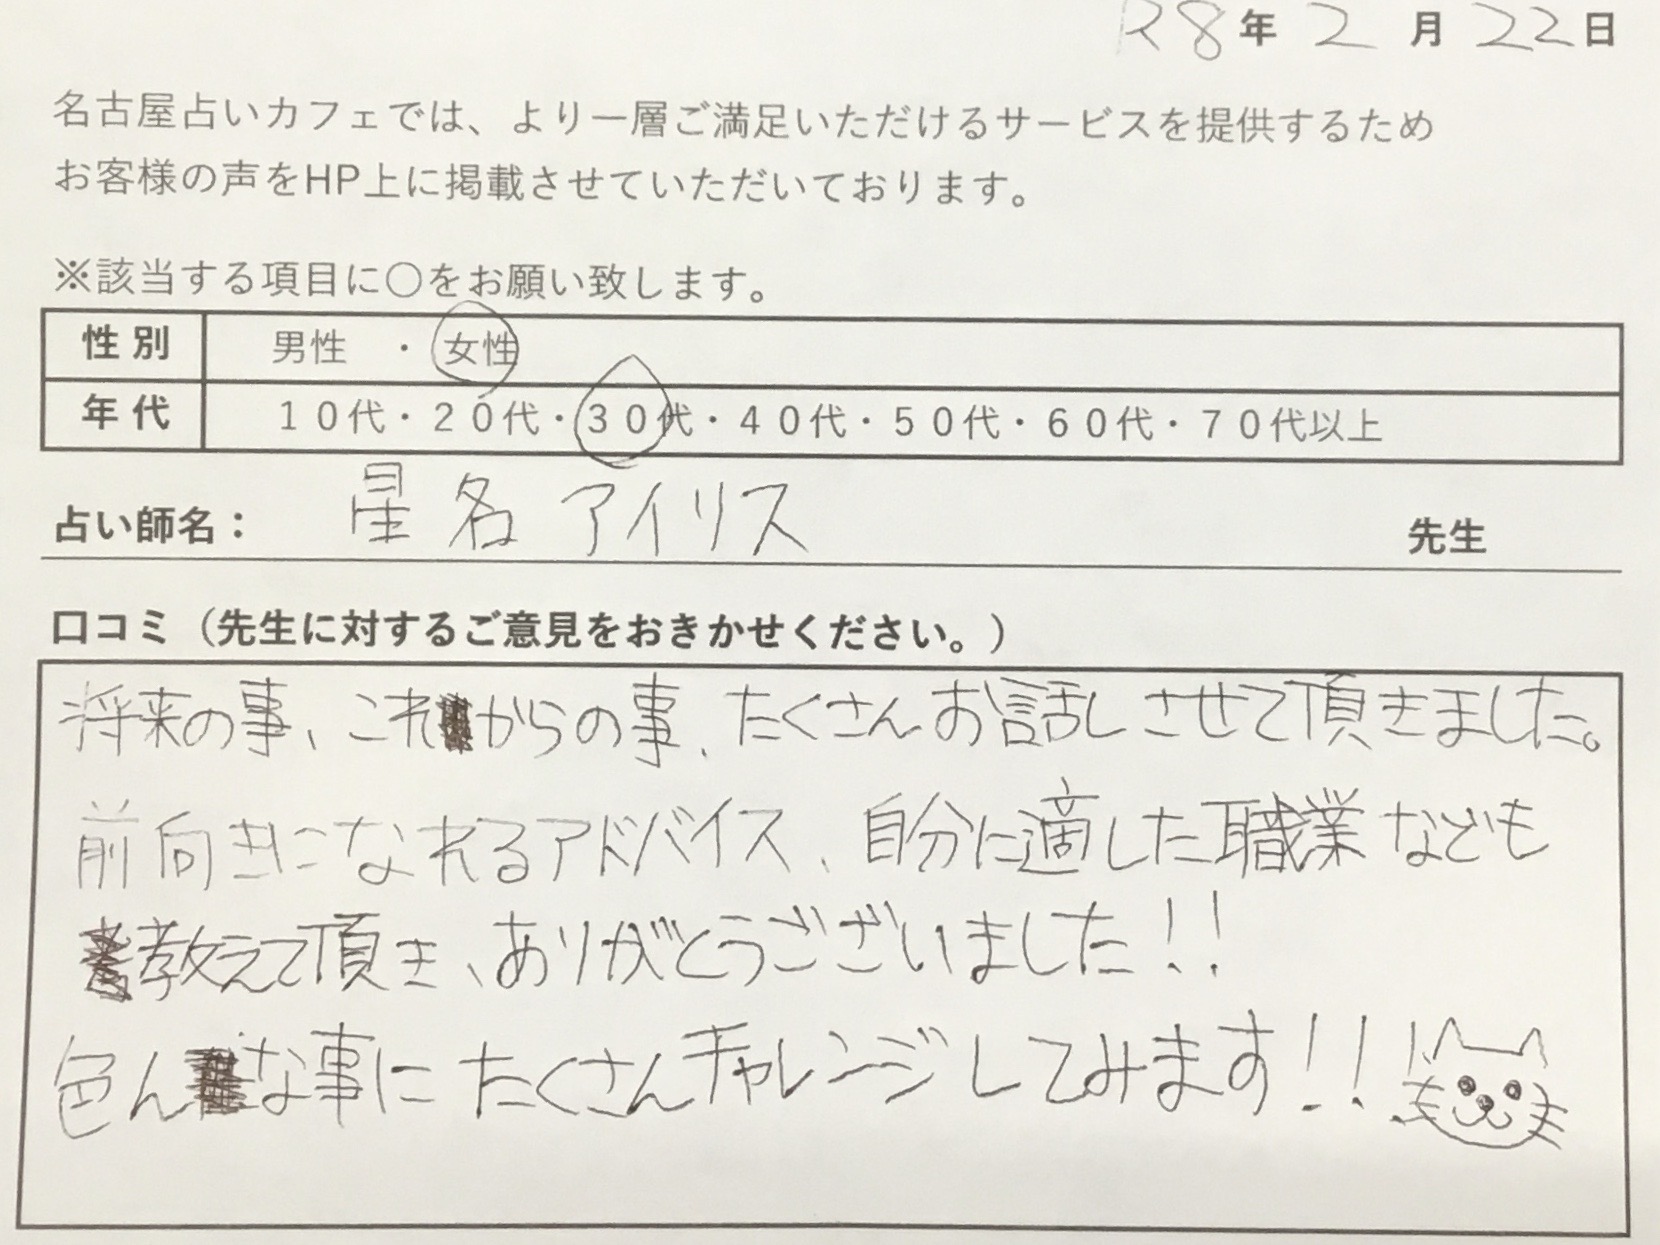 R8年 2月 22日
名古屋占いカフェでは、より一層ご満足いただけるサービスを提供するため
お客様の声をHP上に掲載させていただいております。
※該当する項目に〇をお願い致します。
性別 男性 ・ 女性
年代 10代・20代・30代・40代・50代・60代・70代以上
占い師名： 星名 アイリス 先生
口コミ（先生に対するご意見をおきかせください。）
将来の事、これからの事、たくさんお話しさせて頂きました。
前向きになれるアドバイス、自分に適した職業なども
教えて頂き、ありがとうございました!!
色んな事にたくさんチャレンジしてみます!!!